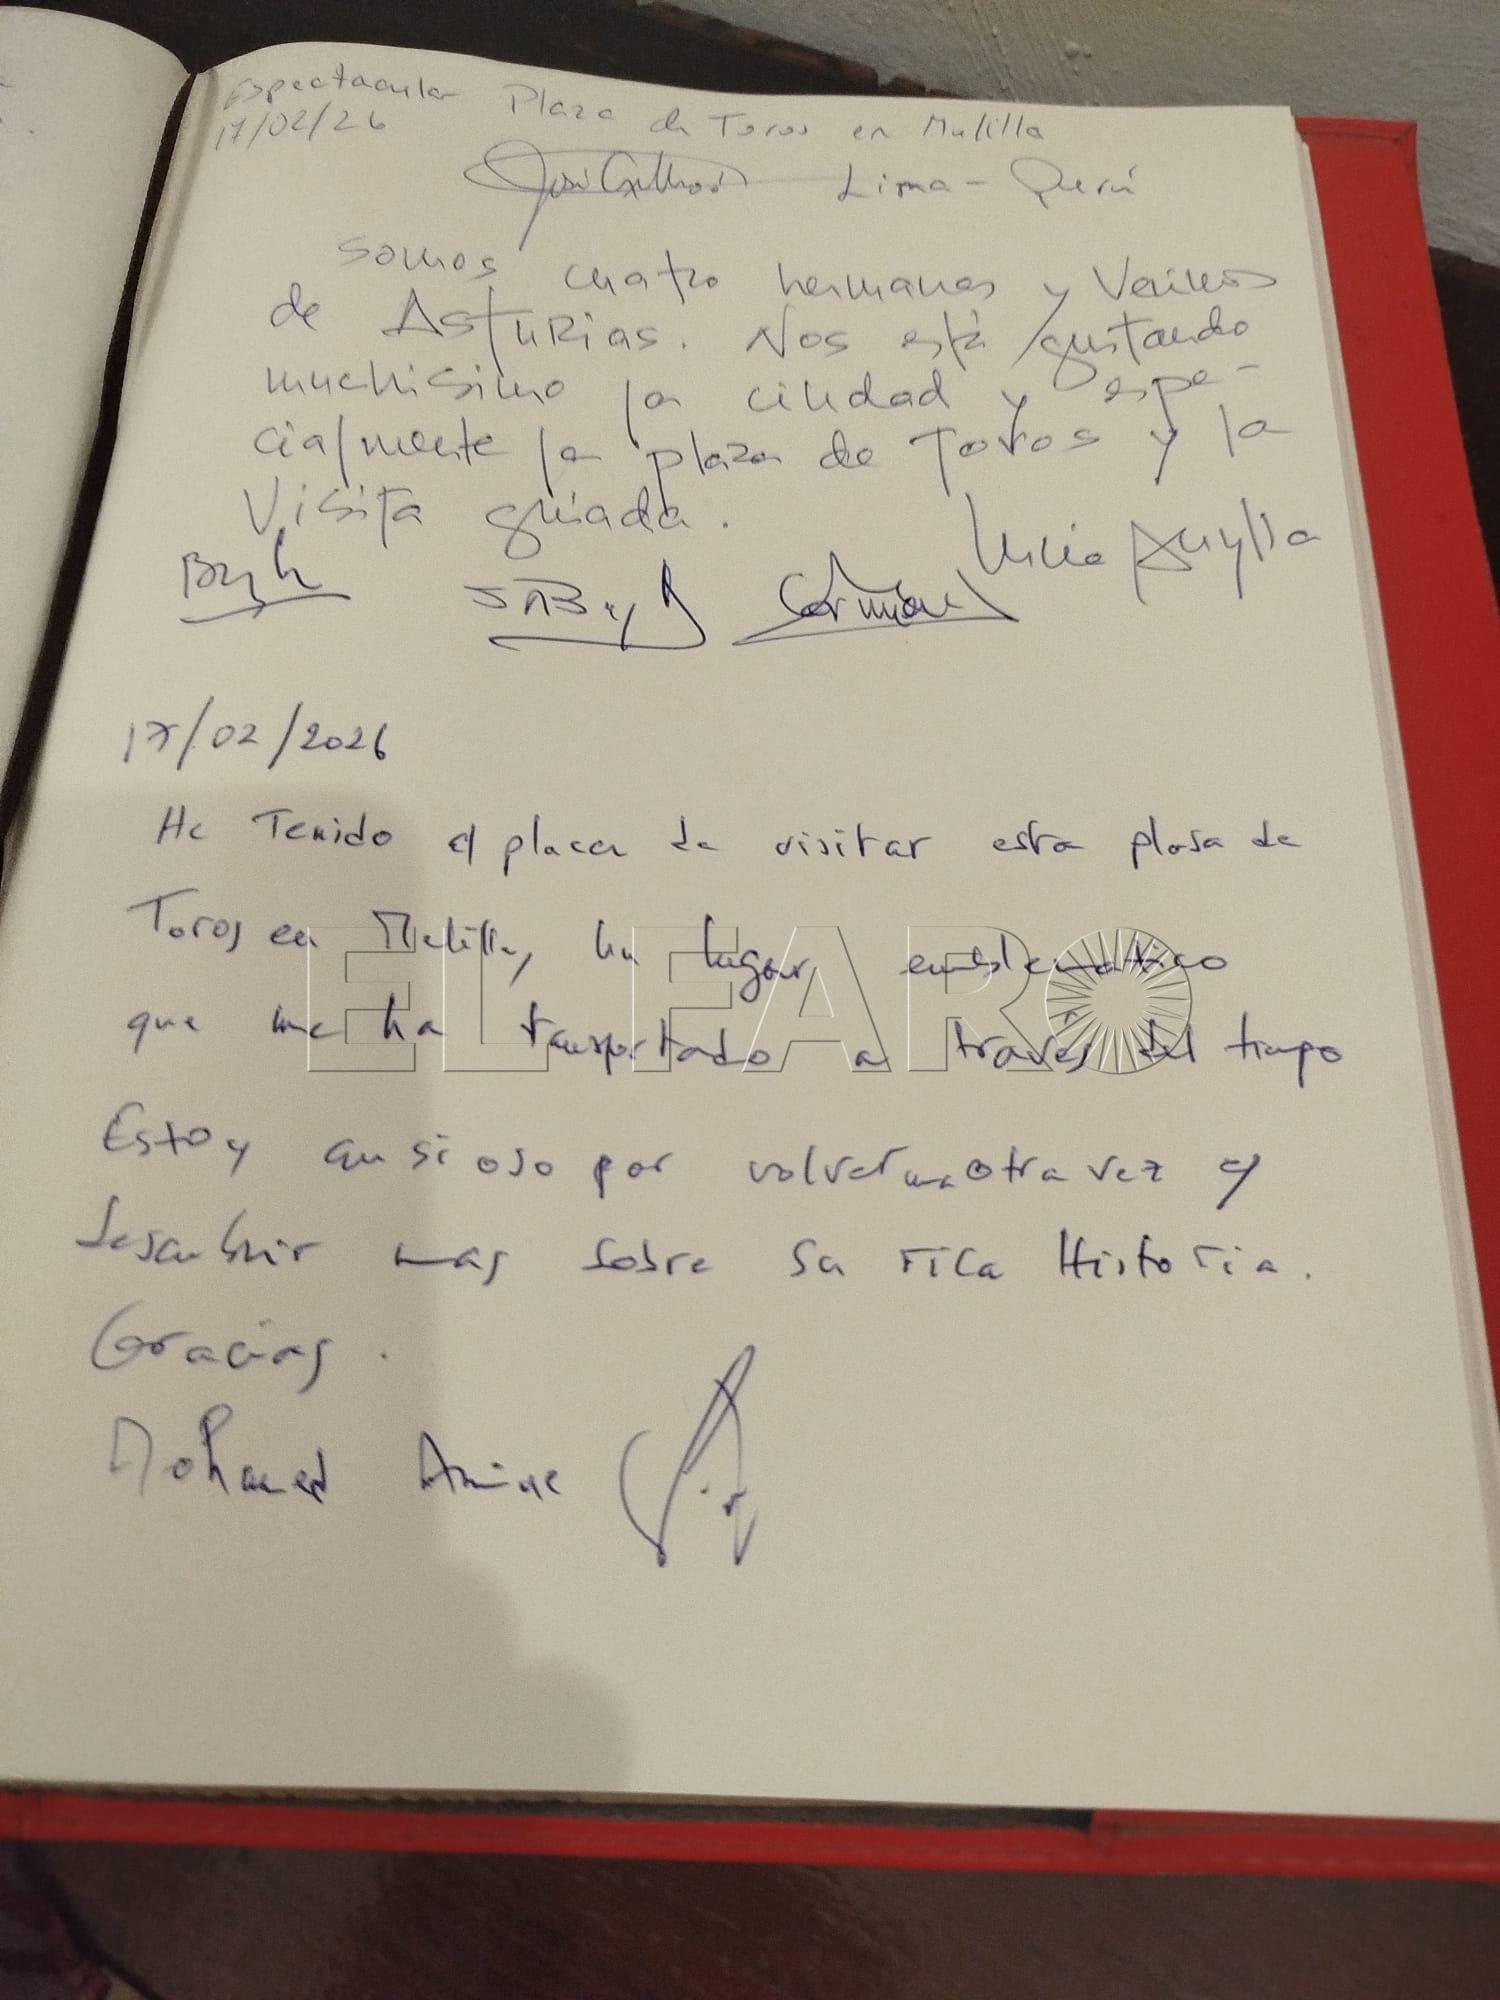 Espectacular Plaza de Toros en Melilla
17/02/26
José Lima - Perú
somos cuatro hermanas y Venimos
de ASTURIAS. Nos está gustando
muchisimo la ciudad y espe-
cialmente la plaza de Toros y la
Visita guiada.
17/02/2026
He Tenido el placer de visitar esta plasa de
Toros en Melilla, un lugar emblematico
que me ha transportado a través del tiempo
Estoy ansioso por volver una otra vez y
descubrir mas sobre su rica Historia.
Gracias.
Mohamed Amine
EL FARO